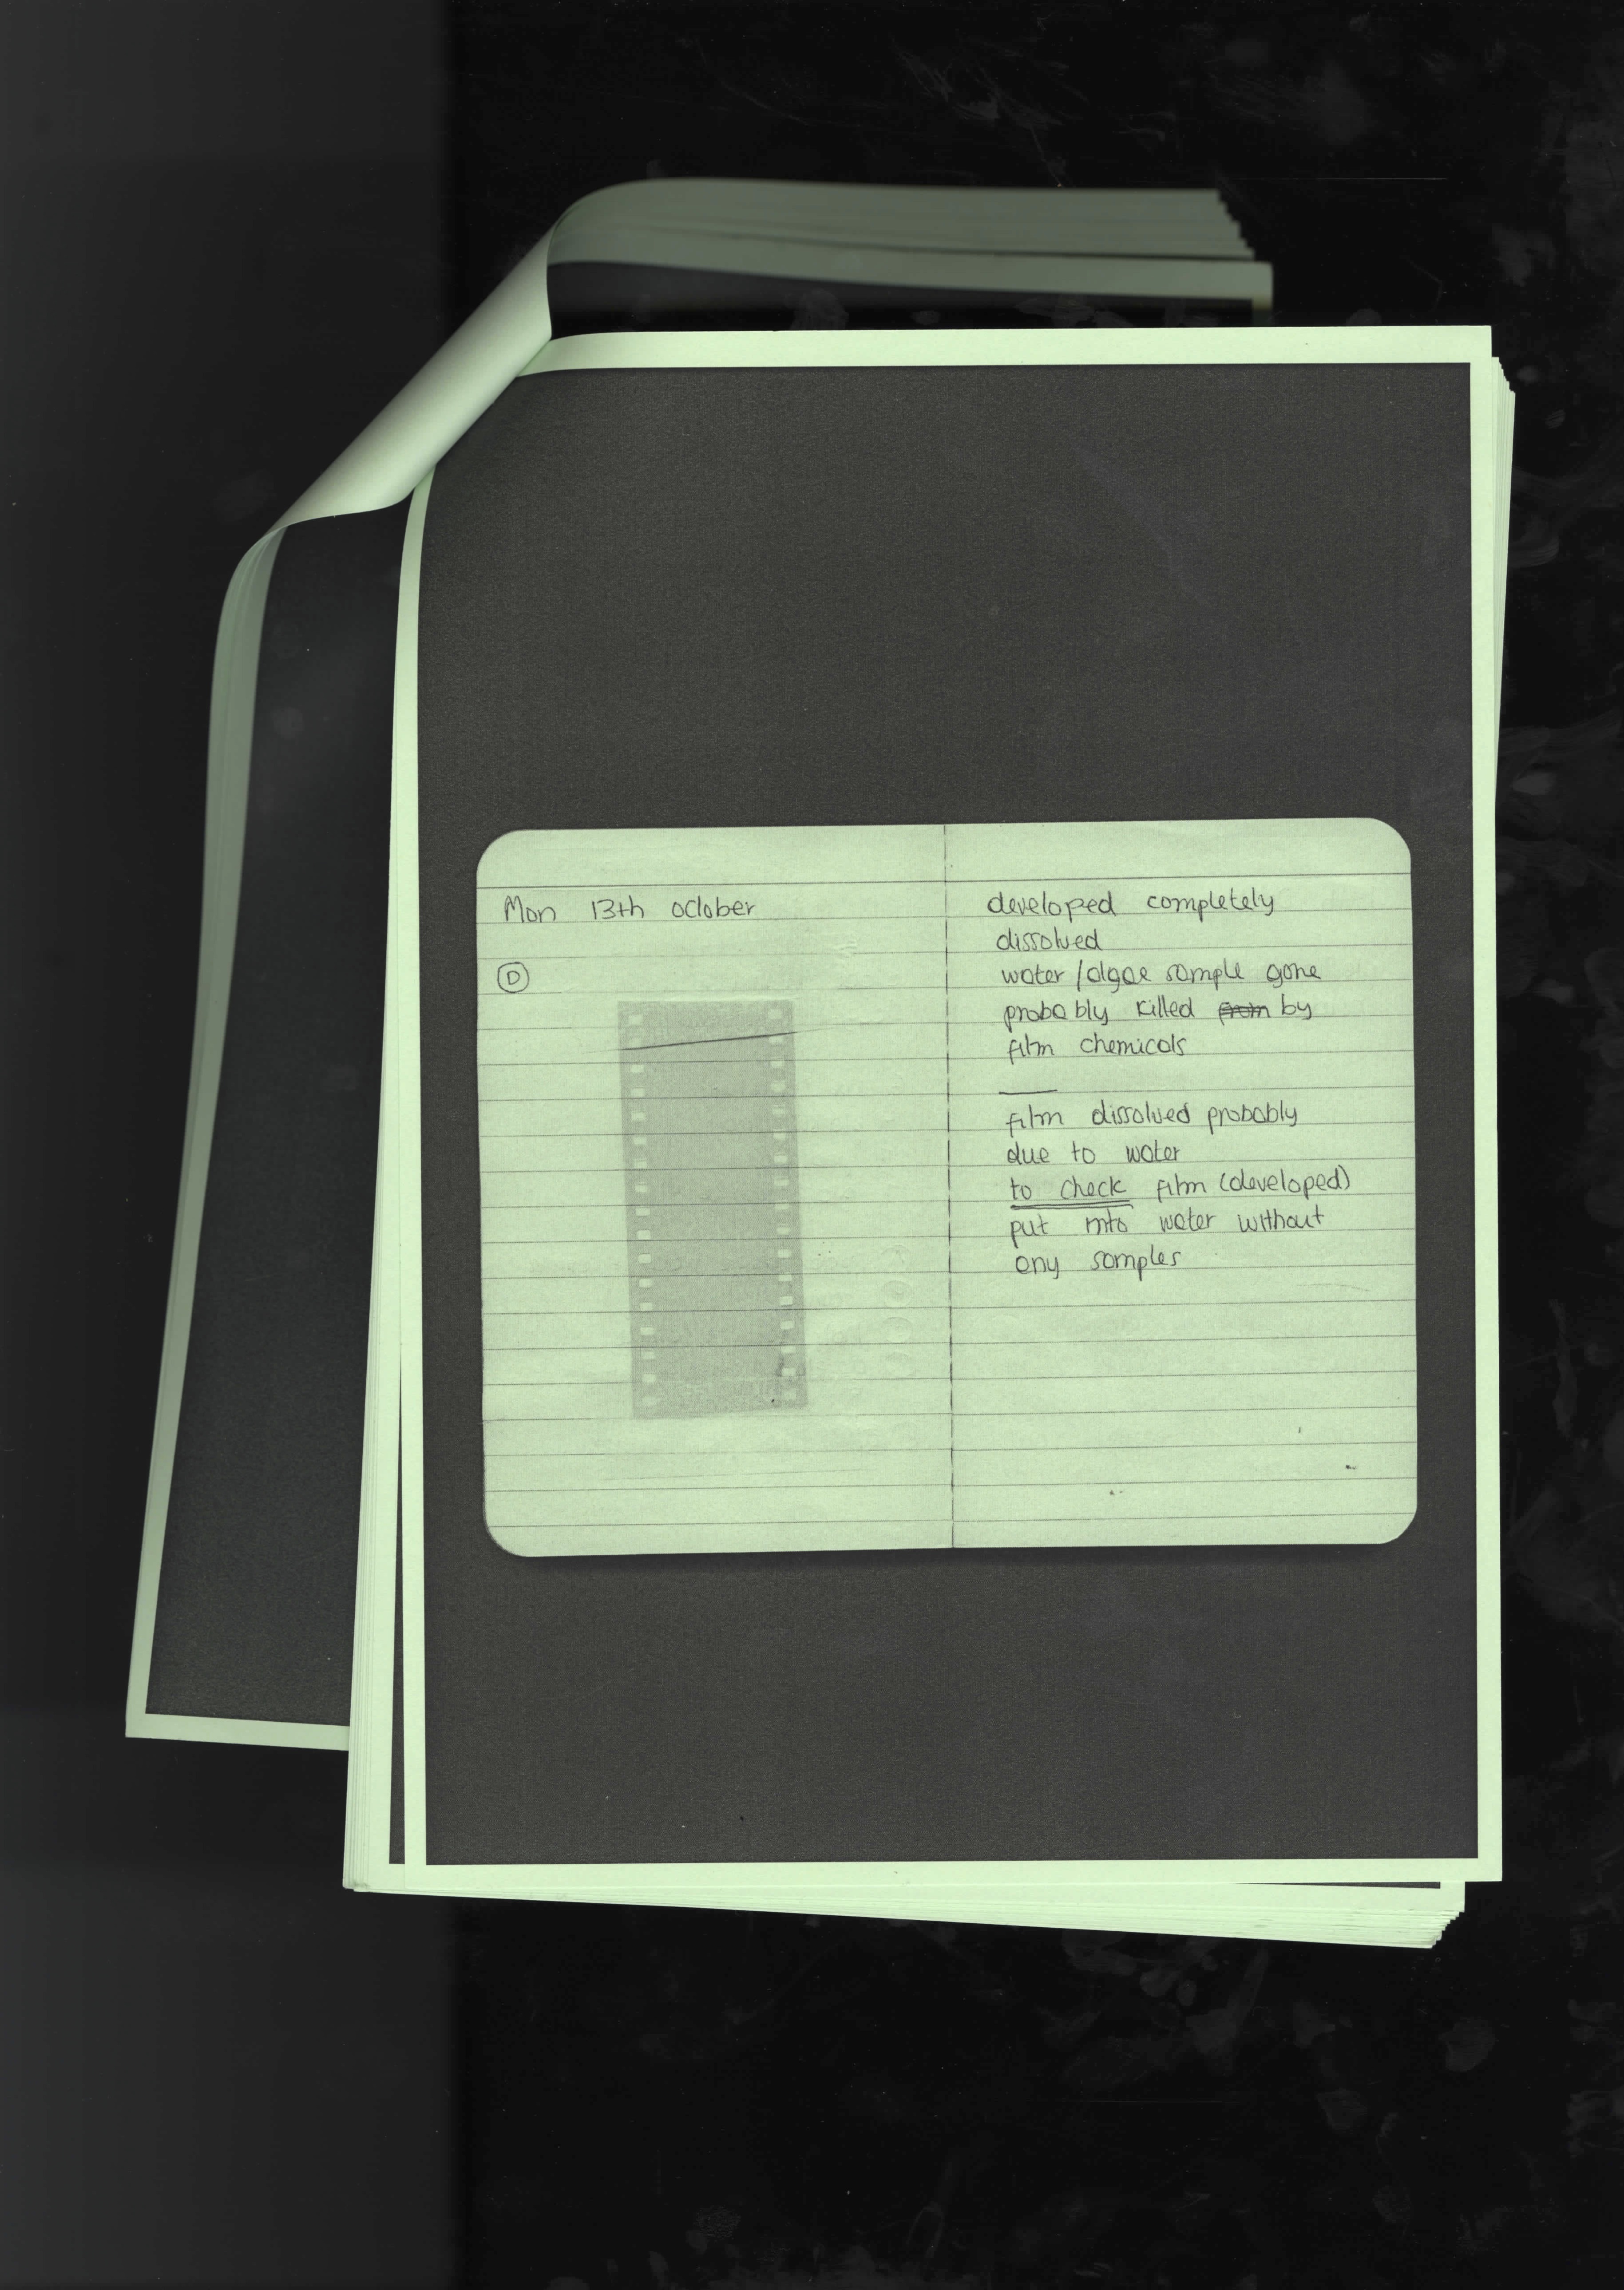 Mon 13th october
D
developed completely
dissolved
water/algae sample gone
probably killed from by
film chemicals
film dissolved probably
due to water
to check film (developed)
put into water without
any samples